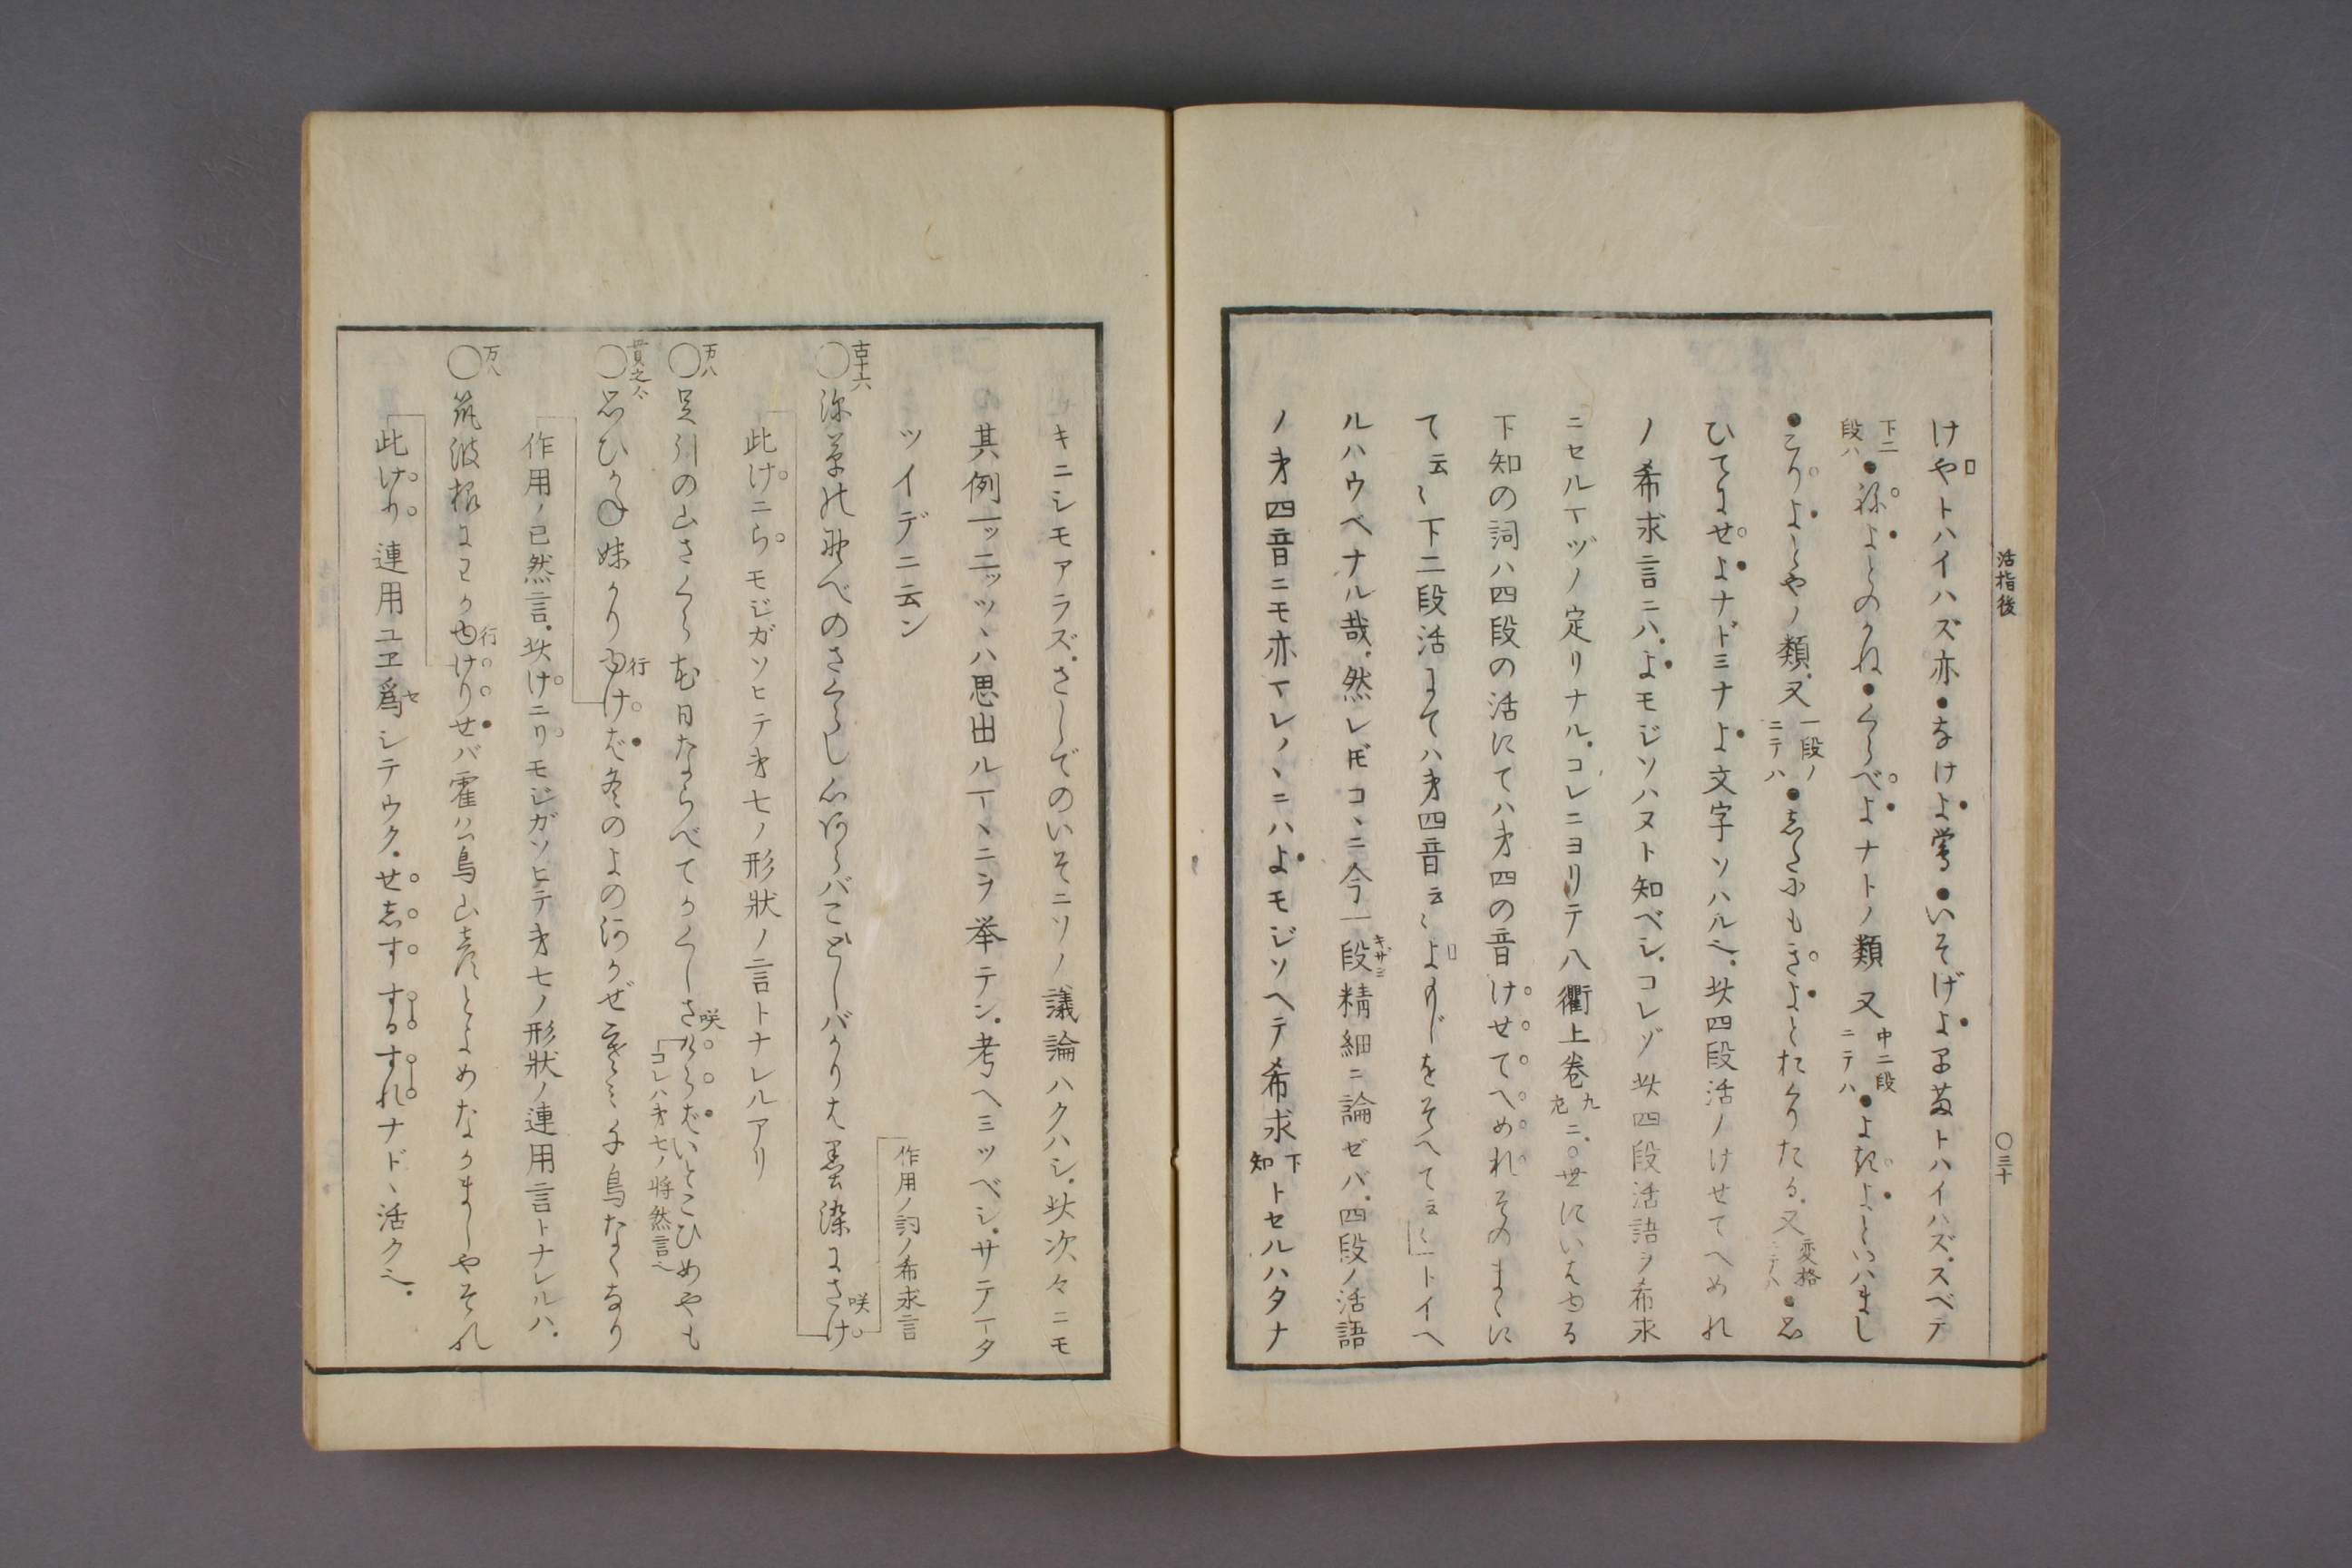 活指後
〇三十
けやトハイハズ亦●なけよ鶯●いそげよ早苗トハイハズ.スベテ
下二段ハ●禰よとのかね●くらべよナトノ類又中二段ニテハ●よきよといハまし
●こりよとやノ類.又一段ノニテハ●志たにもきよとたくりたる.又変格ニテハ●思
ひてよせよナドミナよ文字ソハルベ.此四段活ノけせてへめれ
ノ希求言ニハ.よモジソハヌト知ベシ.コレゾ此四段活語ヲ希求
ニセルヿヅノ定リナル.コレニヨリテ八衢上巻九左ニ.〇世にいはゆる
下知の詞ハ四段の活にてハ才四の音けせてへめれそのまゝに
て云〻下二段活にてハ才四音云〻よもじをそへて云〻トイヘ
ルハウベナル哉.然レ𪜈コヽニ今一段精細ニ論ゼバ.四段ノ活語
ノ才四音ニモ亦マレノヽニハよモジソヘテ希求下知トセルハタナ
キニシモアラズ.さしでのいそニソノ議論ハクハシ.此次々ニモ
其例一ッ二ッツヽハ思出ルヿヽニヲ挙テン.考ヘミツベシ.サテータ
ツイデニ云ン
作用ノ詞ノ希求言
古十六〇深草の野べのさくらし心あらバことしバかりは墨染にさけ咲
此けニらモジガソヒテ才七ノ形狀ノ言トナレルアリ
万八〇足引の山さくら花日ならべてかくしさけらばいとこひめやも
コレハ才七ノ将然言ベ
貫之〇思ひかね妹かりゆけば冬のよの河かぜ寒ミ千鳥なくなり
作用ノ已然言.此けニリモジガソヒテ才七ノ形狀ノ連用言トナレルハ.
万八〇筑波根にわかゆけりせバ霍公鳥山彦とよめなかましやそれ
此けり連用ユヱ爲シテウク.せ志す するすれナドヽ活クベ.